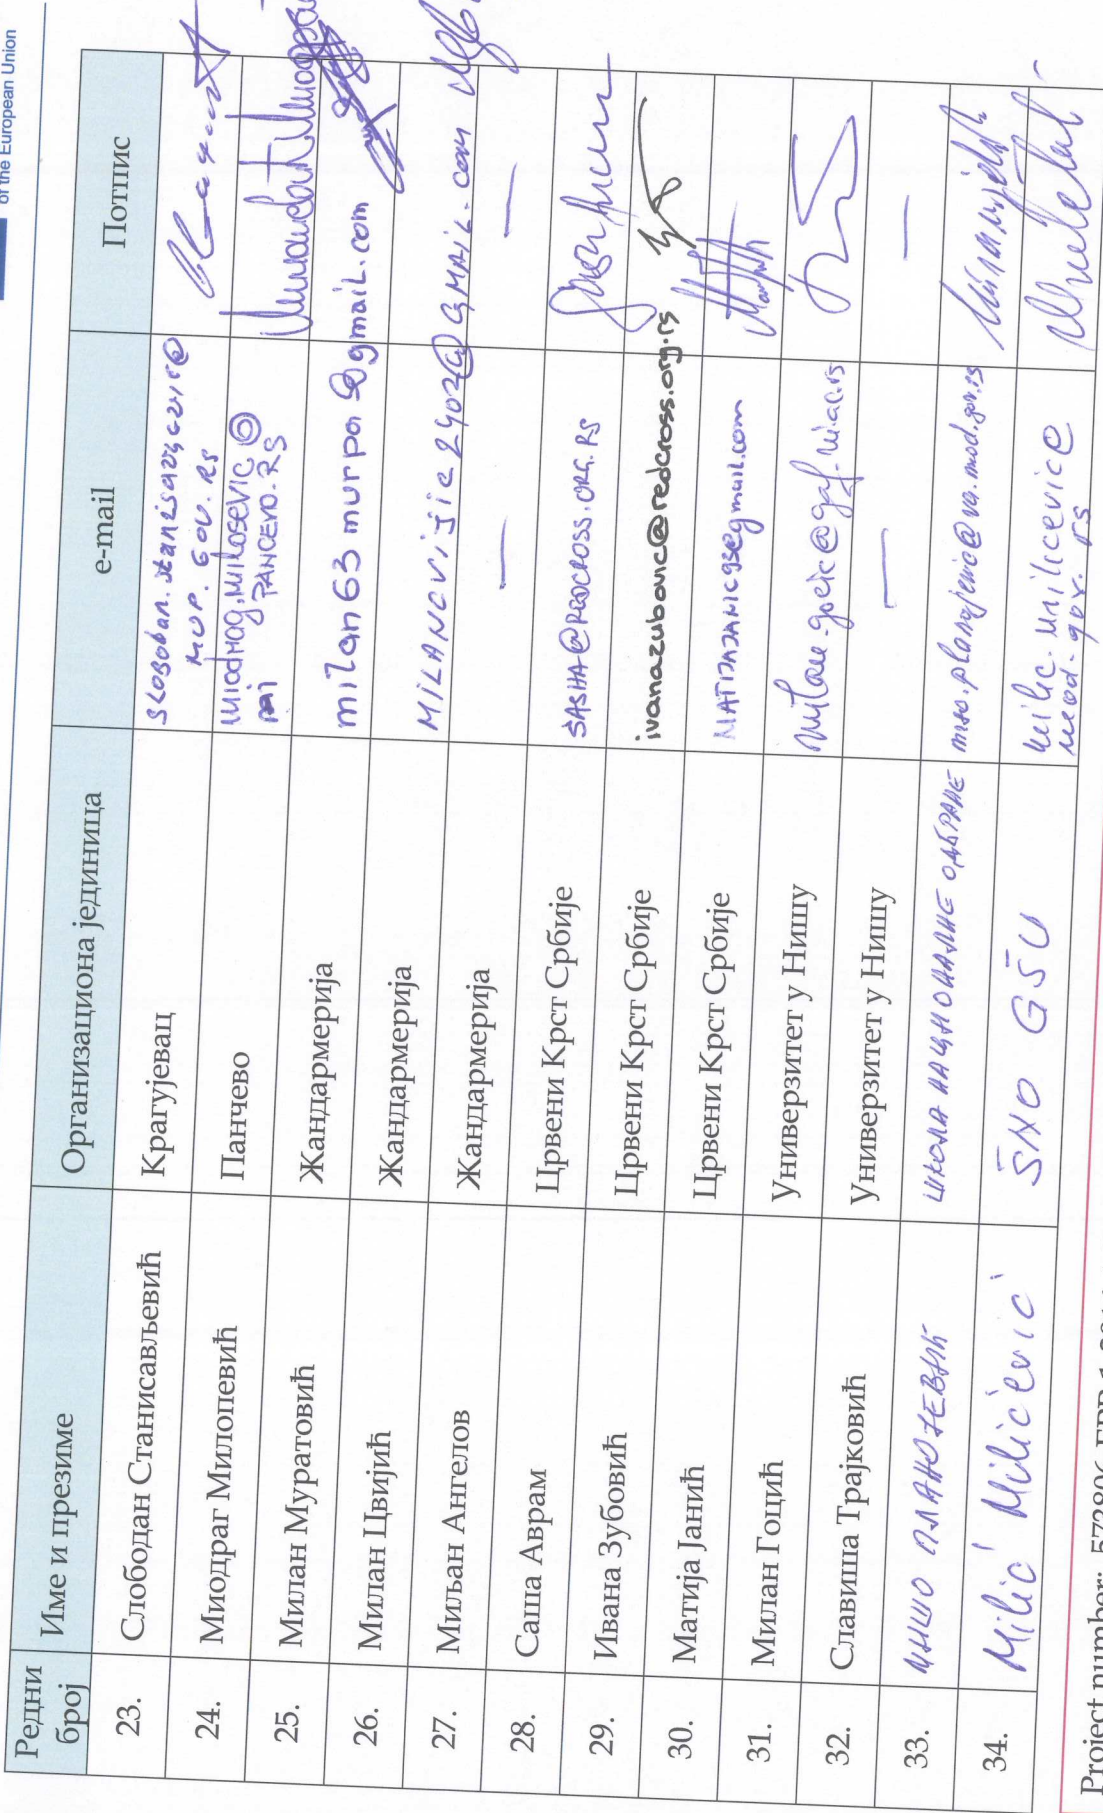 of the European Union
Редни број Име и презиме Организациона јединица e-mail Потпис
23. Слободан Станисављевић Крагујевац
MUP.GOV.RS
24. Миодраг Милошевић Панчево miodrag.milosevic@
PANCEVO.RS
25. Милан Муратовић Жандармерија milan63murpa@gmail.com
26. Милан Цвијић Жандармерија MILANCVIJIC2402@GMAIL.COM
27. Миљан Ангелов Жандармерија — —
28. Саша Аврам Црвени Крст Србије SASHA@REDCROSS.ORG.RS
29. Ивана Зубовић Црвени Крст Србије ivanazubovic@redcross.org.rs
30. Матија Јанић Црвени Крст Србије
31. Милан Гоцић Универзитет у Нишу milan.gocic@gaf.ni.ac.rs
32. Славиша Трајковић Универзитет у Нишу — —
33. ШКОЛА НАЦИОНАЛНЕ ОДБРАНЕ
34. Milić Milićević ŠNO GŠU milic.milicevic@
mod.gov.rs
Project number: